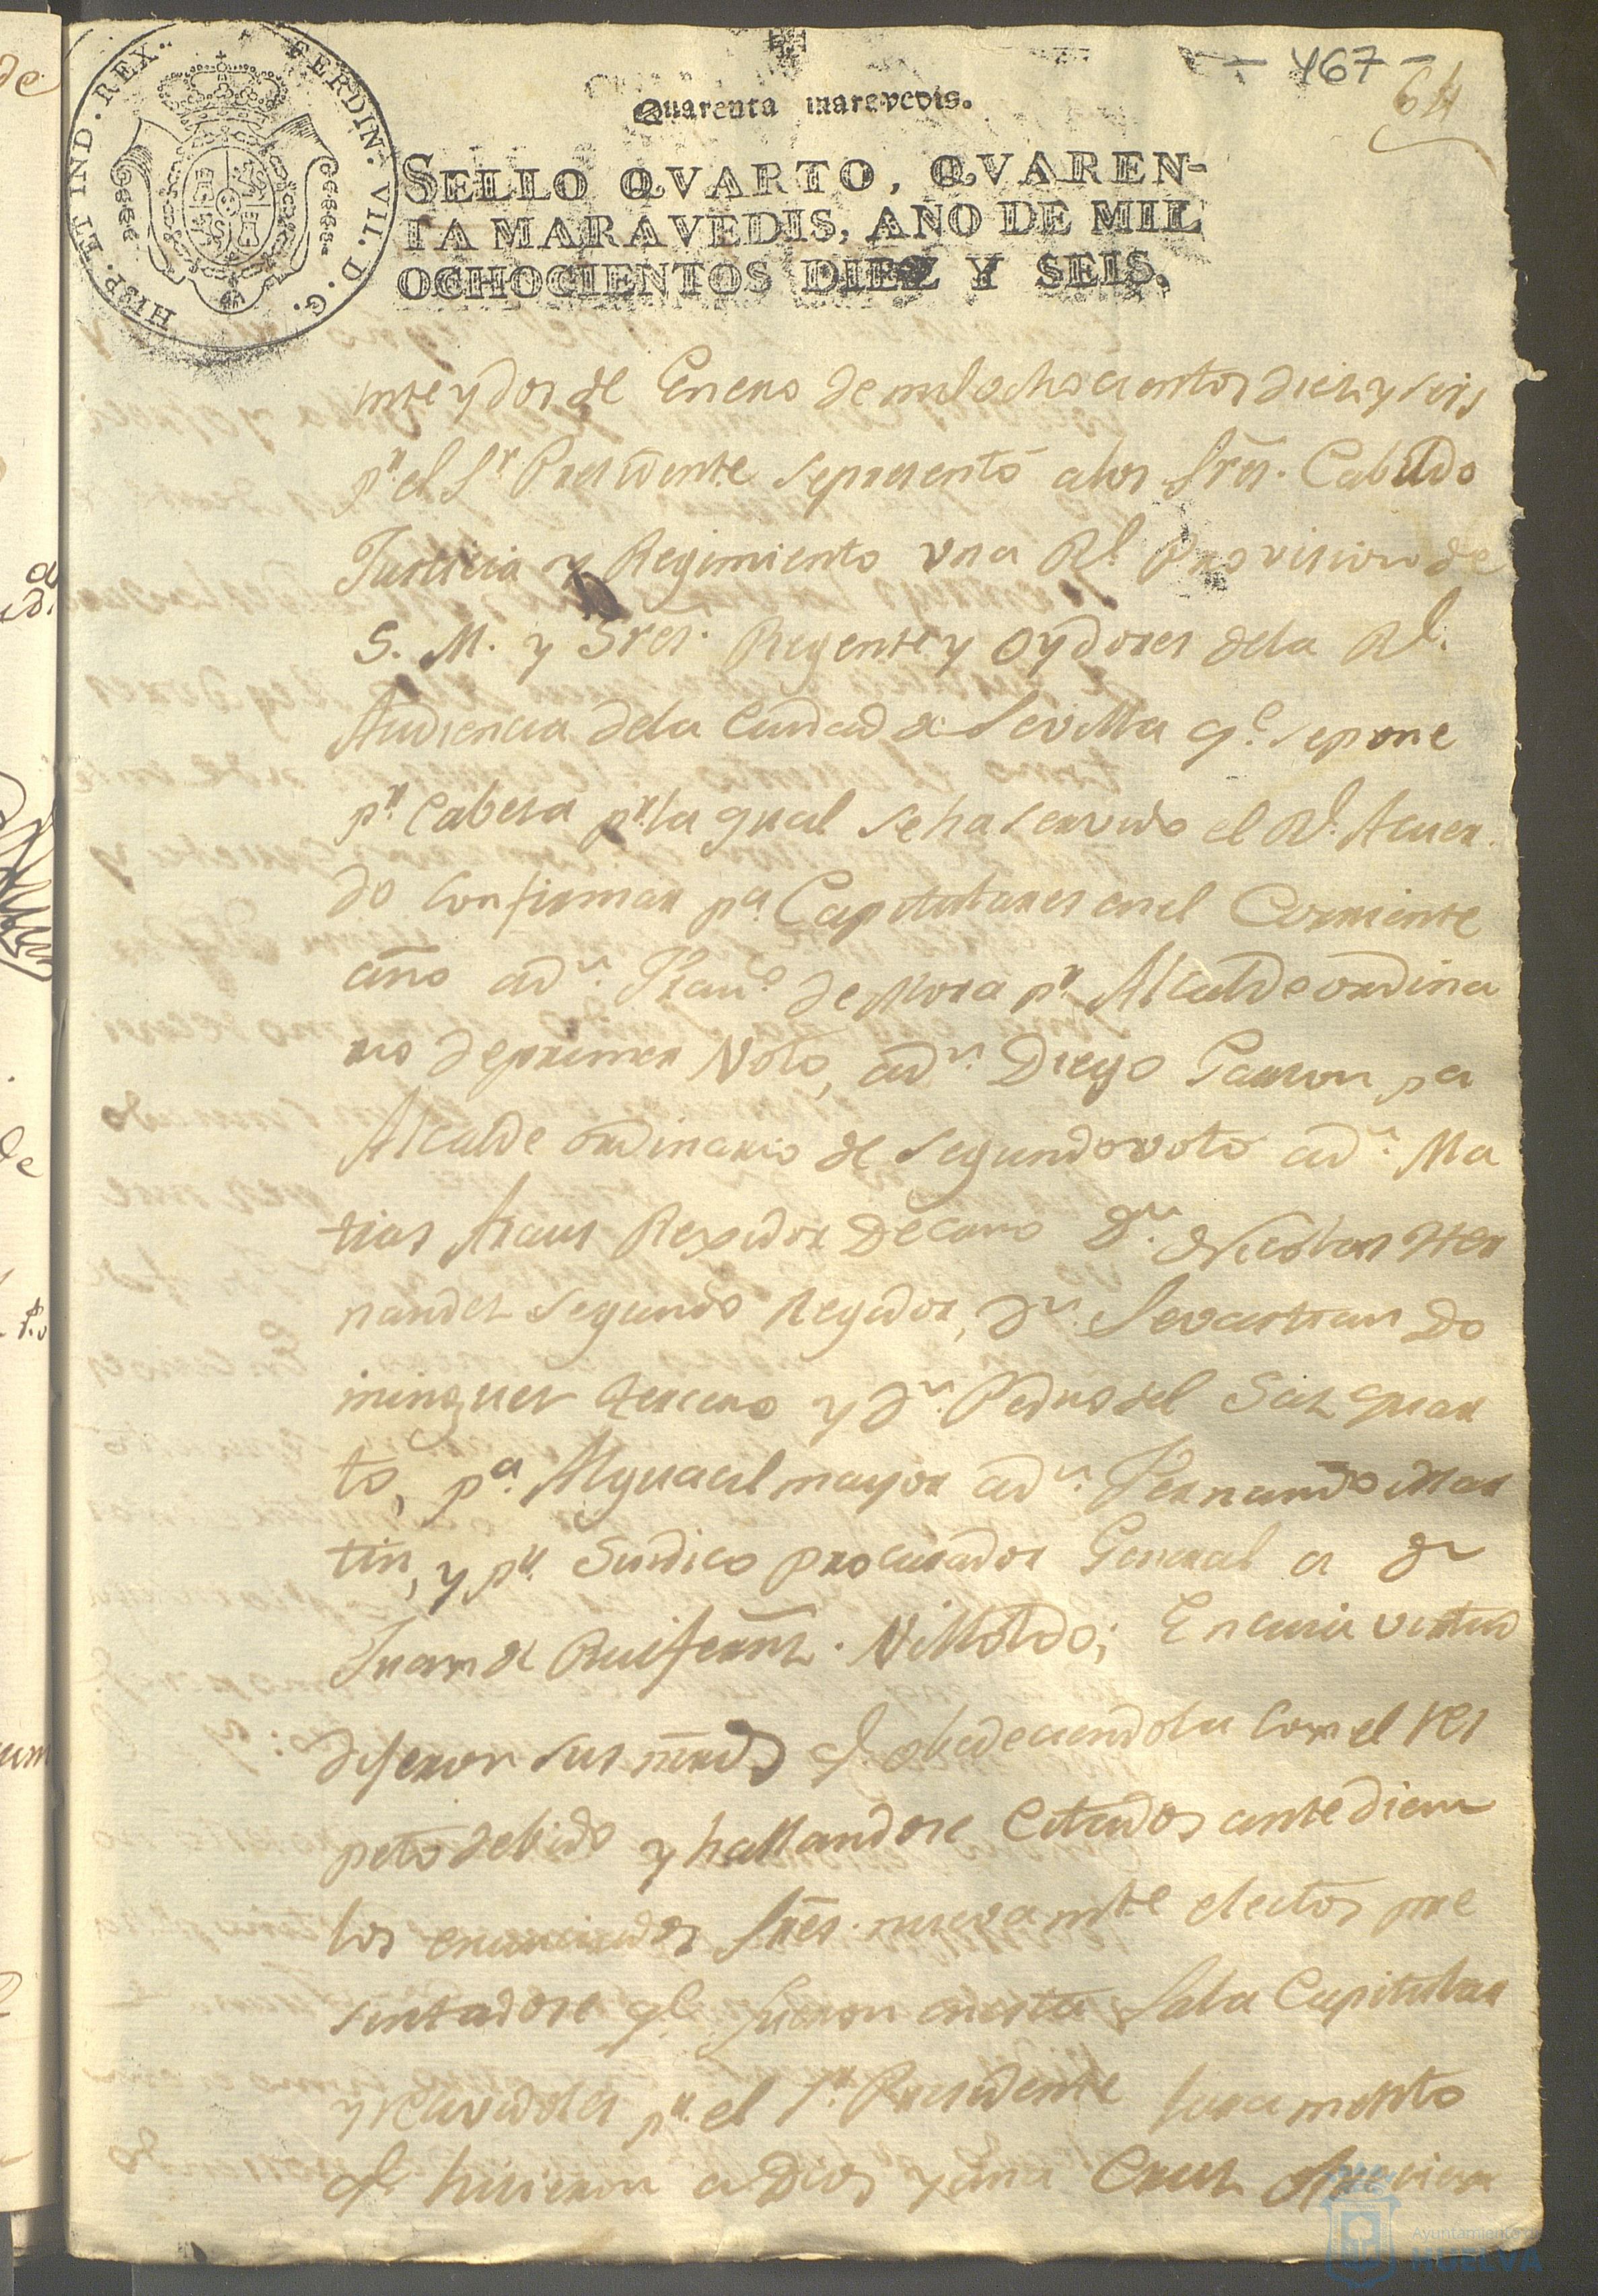 - 467 -
64
Quarenta maravedis.
HISP. ET IND. REX. FERDIN. VII. D. G.
SELLO QVARTO, QVAREN-
TA MARAVEDIS, AÑO DE MIL
OCHOCIENTOS DIEZ Y SEIS.
inte y dos de Enero de mil ochocientos diez y seis
pr. el Sr Presidente se presentó a los Sres. Cabildo
Justicia y Regimiento una Rl. Provision de
S. M. y Sres. Regente y Oydores dela Rl.
Audiencia dela Ciudad de Sevilla qe. se pone
pr. Cabesa pr. la qual se ha servido el Rl. Acuer
do confirmar pa. Capitulares en el Corriente
año a dn. Franco. de Mora pr. Alcalde ordina
rio de primer Voto, a dn. Diego Garzon pa
Alcalde ordinario de segundo voto a dn. Ma
tias Araus Rexidor Decano Dn. Nicolas Her
nandez segundo Regidor, dn. Sevastian Do
minguez tercero y dn. Pedro del Saz quar
to, pa. Alguacil mayor a dn. Fernando Mar
tin, y pr. Sindico procurador General a dn
Juan de Ruifernz. Villoldo; En cuia virtud
dijeron sus mrds q. obedeciendola con el res
peto debido y hallandose Citados ante diem
los enunciados Sres. nuevamte electos pre
sentadose qe. fueron en esta Sala Capitular
y recividoles pr. el Sr. Presidente juramento
qe. hicieron a Dios y a una Cruz ofrecieron
Ayuntamiento de
HUELVA